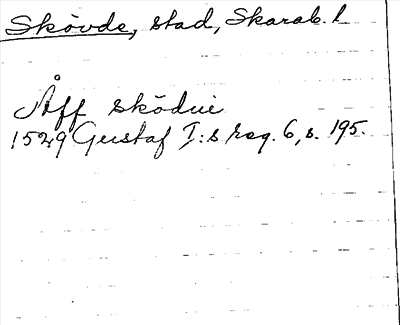 Skövde, stad, Skarab. l
Åff sködue
1529 Gustaf I:s reg. 6, s. 195.